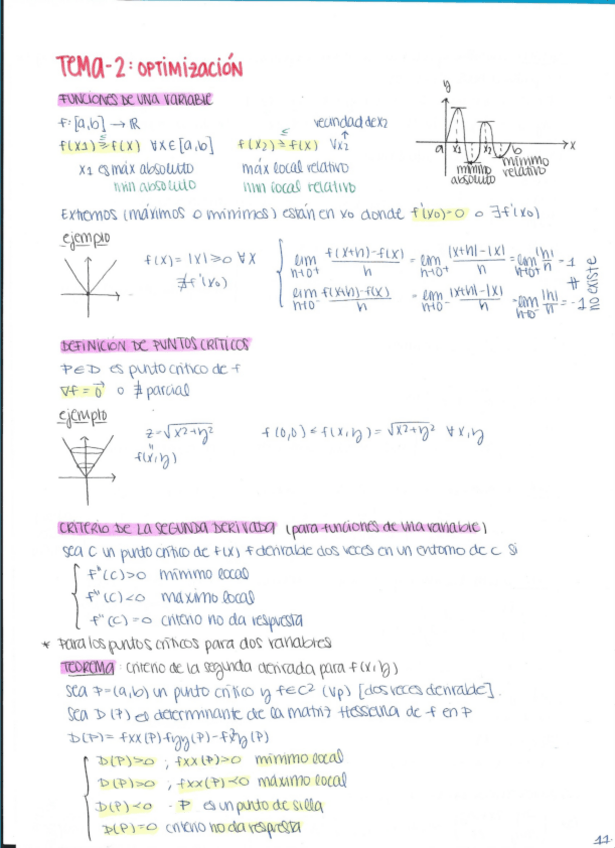 TEMA-2: OPTIMIZACIÓN
FUNCIONES DE UNA VARIABLE
f: [a,b] → ℝ
vecindad de x2
f(x1) ≥ f(x) ∀x∈[a,b]
≤
f(x2) ≥ f(x) ∀x2
≤
x1 es máx absoluto
máx local relativo
min absoluto
min local relativo
y
a x1 x2 b x
mínimo absoluto
mínimo relativo
Extremos (máximos o mínimos) están en x0 donde f'(x0)=0 o ∄f'(x0)
ejemplo
f(x) = |x| ≥ 0 ∀x
∄f'(x0)
lim h→0+ f(x+h)-f(x) / h = lim h→0+ |x+h|-|x| / h = lim h→0+ |h| / h = 1
≠ no existe
lim h→0- f(x+h)-f(x) / h = lim h→0- |x+h|-|x| / h = lim h→0- |h| / h = -1
DEFINICIÓN DE PUNTOS CRÍTICOS
P∈D es punto crítico de f
∇f = 0⃗ o ∄ parcial
ejemplo
z=√x²+y²
f(0,0) ≤ f(x,y) = √x²+y² ∀x,y
f(x,y)
CRITERIO DE LA SEGUNDA DERIVADA (para funciones de una variable)
sea c un punto crítico de f(x) f derivable dos veces en un entorno de c si
f''(c)>0 mínimo local
f''(c)<0 máximo local
f''(c)=0 criterio no da respuesta
* Para los puntos críticos para dos variables
TEOREMA: criterio de la segunda derivada para f(x,y)
sea P=(a,b) un punto crítico y f∈C² (Vp) [dos veces derivable].
sea D(P) es determinante de la matriz Hessiana de f en P
D(P)= fxx(P)·fyy(P)-f²xy(P)
D(P)>0 ; fxx(P)>0 mínimo local
D(P)>0 ; fxx(P)<0 máximo local
D(P)<0 · P es un punto de silla
D(P)=0 criterio no da respuesta
11